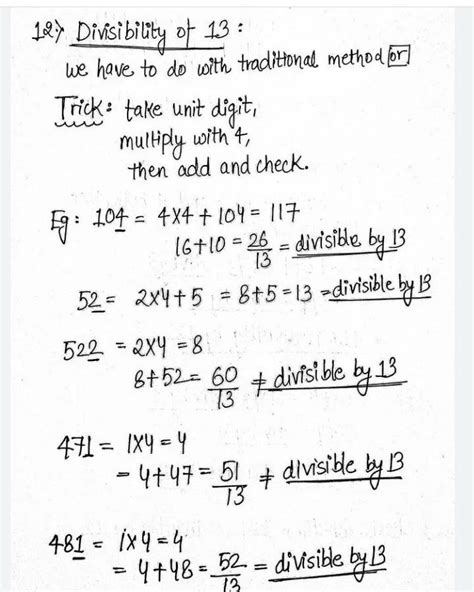 12> Divisibility of 13 :
we have to do with traditional method or
Trick : take unit digit,
multiply with 4,
then add and check.
Eg : 104 = 4x4 + 104 = 117
16+10 = 26/13 = divisible by 13
52 = 2x4+5 = 8+5 = 13 = divisible by 13
522 = 2x4 = 8
8+52 = 60/13 ≠ divisible by 13
471 = 1x4 = 4
= 4+47 = 51/13 ≠ divisible by 13
481 = 1x4 = 4
= 4+48 = 52/13 = divisible by 13